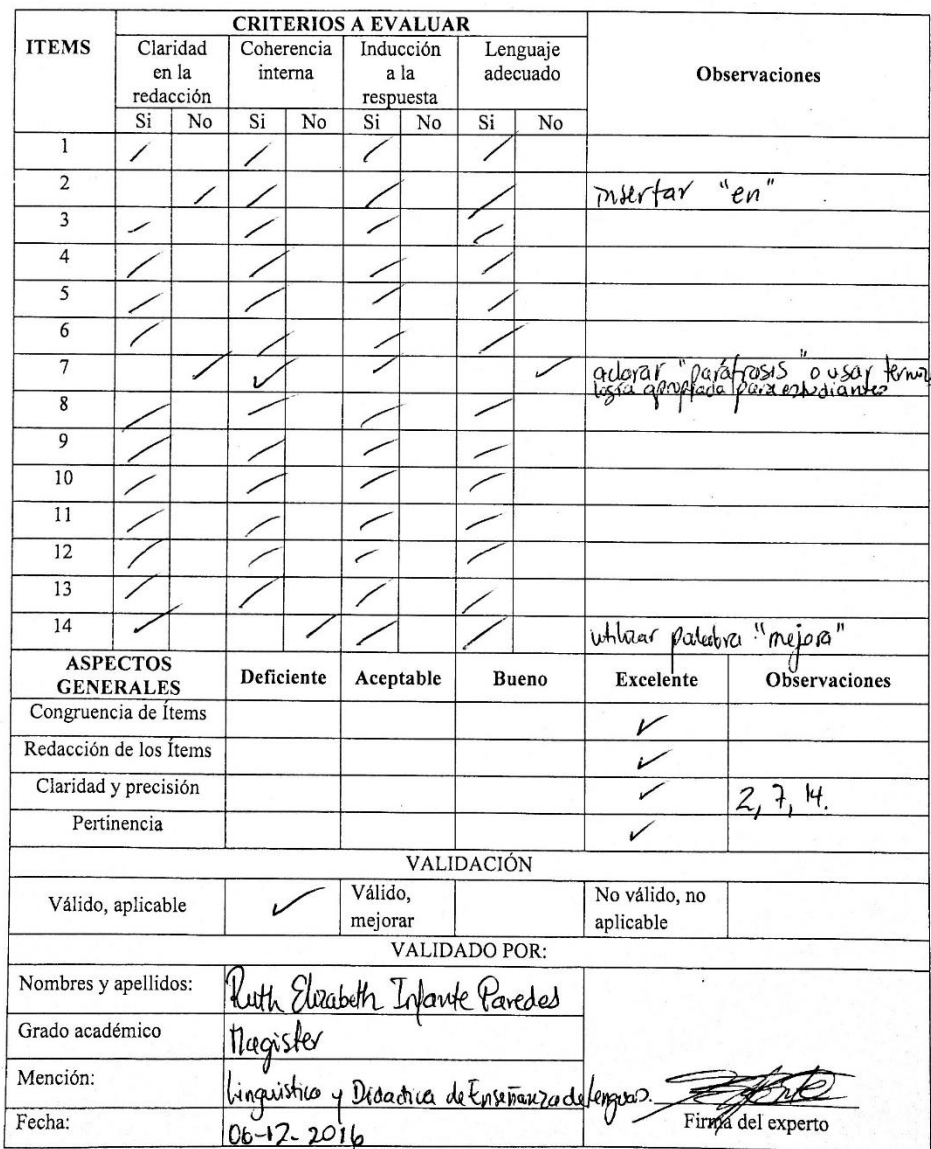 CRITERIOS A EVALUAR
ITEMS Claridad en la redacción Coherencia interna Inducción a la respuesta Lenguaje adecuado Observaciones
Si No Si No Si No Si No
1
2 insertar "en"
3
4
5
6
7 aclarar "paráfrasis" o usar termino
logía apropiada para estudiantes
8
9
10
11
12
13
14 utilizar palabra "mejora"
ASPECTOS GENERALES Deficiente Aceptable Bueno Excelente Observaciones
Congruencia de Ítems
Redacción de los Ítems
Claridad y precisión 2, 7, 14.
Pertinencia
VALIDACIÓN
Válido, aplicable Válido, mejorar No válido, no aplicable
VALIDADO POR:
Nombres y apellidos: Ruth Elizabeth Infante Paredes
Grado académico Magister
Mención: Lingüística y Didactica de Enseñanza de Lenguas.
Fecha: 06-12-2016
Firma del experto